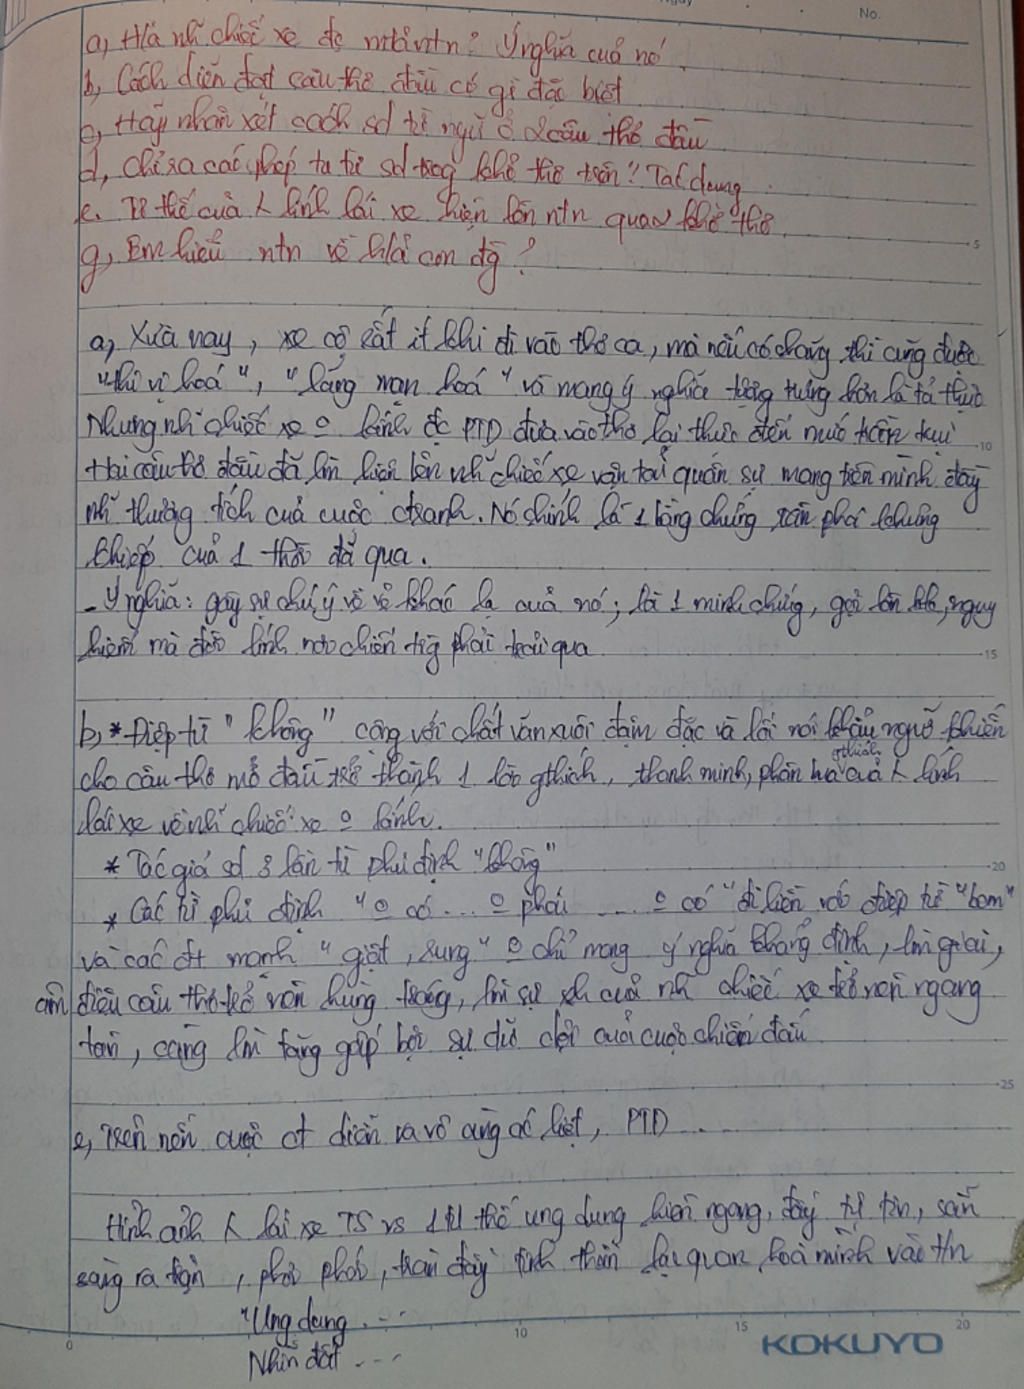 No.
a, H/ả nh~ chiếc xe đc mtả ntn? Ý nghĩa của nó.
b, Cách diễn đạt câu thơ đầu có gì đặc biệt
c, Hãy nhận xét cách sd từ ngữ ở 2 câu thơ đầu
d, chỉ ra các phép tu từ sd trog khổ thơ trên? Tác dụng.
e. Tư thế của lính lái xe hiện lên ntn qua khổ thơ.
g, Em hiểu ntn về h/ả con đg?
5
a, Xưa nay, xe cộ rất ít khi đi vào thơ ca, mà nếu có chăng thì cũng được
"thi vị hoá", "lãng mạn hoá" và mang ý nghĩa tượng trưng hơn là tả thực
Nhưng nh~ chiếc xe o kính đc PTD đưa vào thơ lại thực đến mức trần trụi
10
Hai câu thơ đầu đã lm hiện lên nh~ chiếc xe vận tải quân sự mang trên mình đầy
nh~ thương tích của cuộc ctranh. Nó chính là 1 bằng chứng tàn phá khủng
khiếp của 1 thời đã qua.
- Ý nghĩa: gây sự chú ý về vẻ khác lạ của nó; là 1 minh chứng, gợi lên kk, nguy
hiểm mà đời lính nơi chiến trg phải trải qua
15
b, * Điệp từ "không" cộng với chất văn xuôi đậm đặc và lối nói khẩu ngữ khiến
cho câu thơ mở đầu trở thành 1 lời gthích, thanh minh, phân bua của lính
lái xe về nh~ chiếc xe o kính.
* Tác giả sd 3 lần từ phủ định "không"
20
* Các từ phủ định "o có... o phải .... o có" đi liền với điệp từ "bom"
và các đt mạnh "giật, rung" o chỉ mang ý nghĩa khẳng định, lm giai,
âm điệu câu thơ trở nên hùng tráng, lm sự xh của nh~ chiếc xe trở nên ngang
tàn, càng lm tăng gấp bội sự dữ dội của cuộc chiến đấu
25
e, Trên nền cuộc ct diễn ra vô cùng ác liệt, PTD ..
Hình ảnh lái xe TS vs 1 tư thế ung dung hiên ngang, đầy tự tin, sẵn
sàng ra trận, phơi phới, tràn đầy tinh thần lạc quan, hoà mình vào t/n
"Ung dung ...
Nhìn đất ...
0 5 10 15 20
KOKUYO